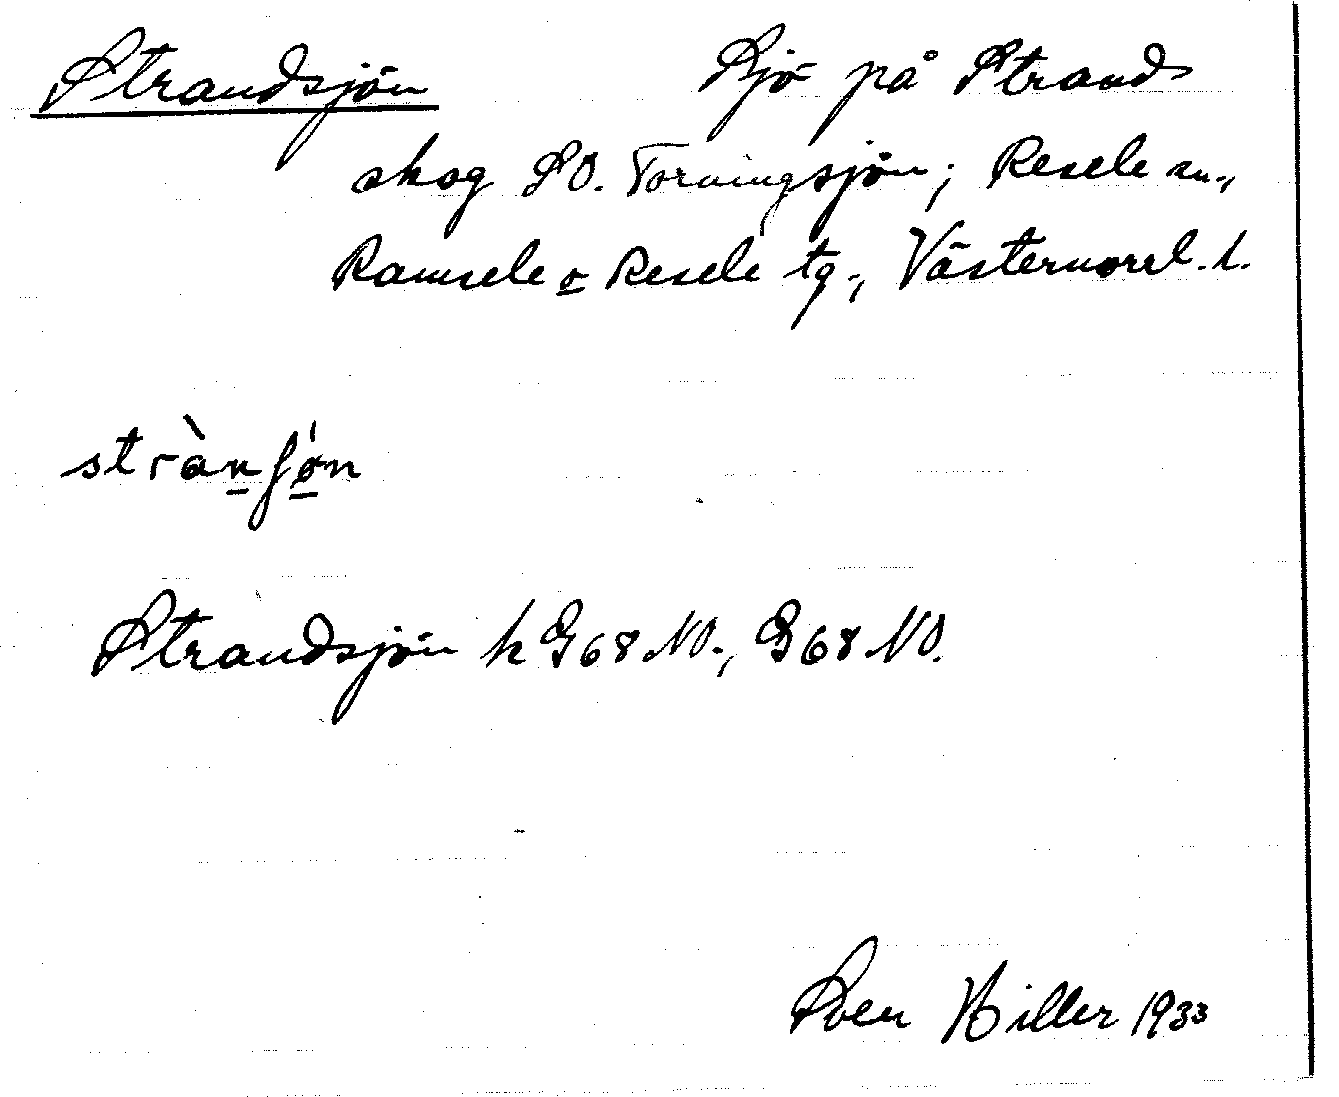 Strandsjön Sjö på Strands
skog SO. Torvingsjön; Resele sn.,
Ramsele o Resele tg., Västernorrl. l.
stràn̲ʃǿ̲n
Strandsjön h G68 NO., G68 NO.
Sven Hiller 1933